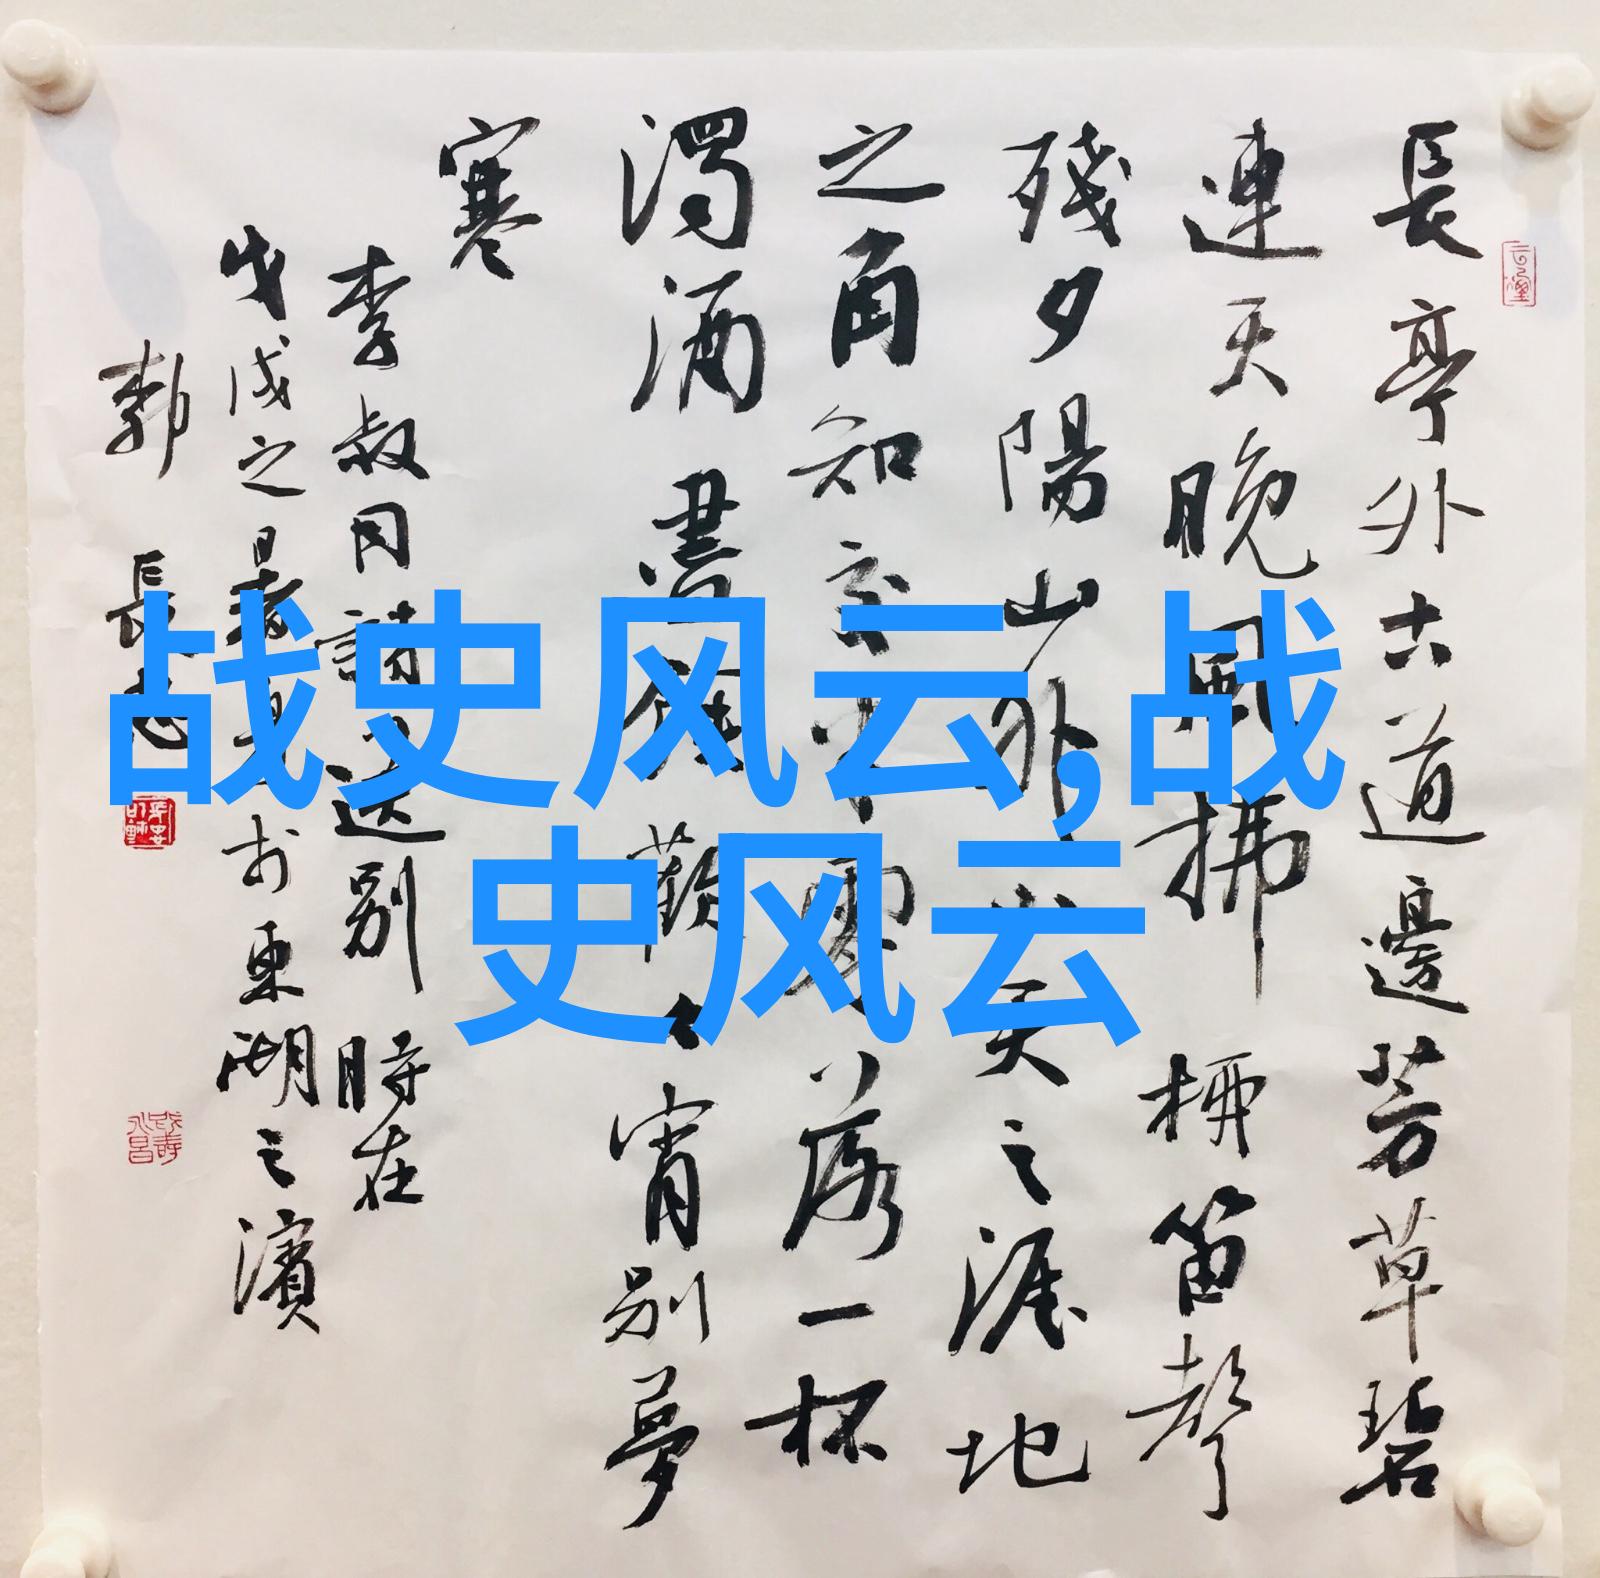 長亭外古道邊芳草碧
連天晚風拂柳笛聲
殘夕陽山外山天之涯地
之角知交半零落一杯
濁酒盡餘歡今宵別夢
寒
李叔同詩送别 時在
戊戌之於東湖之濱
長
战史风云,战
史风云